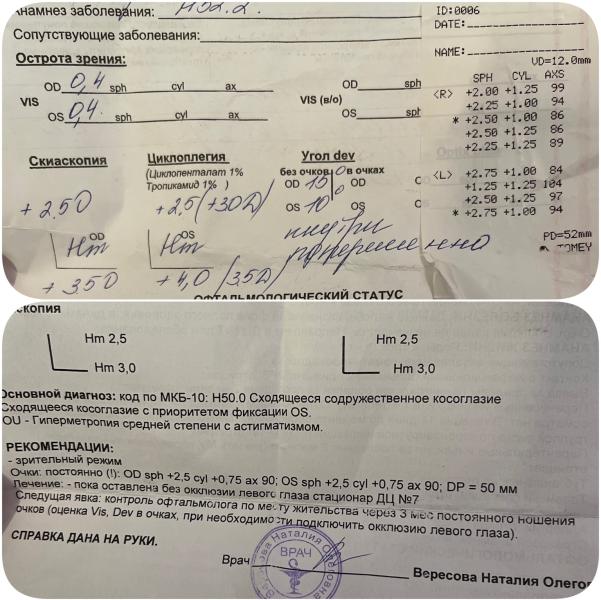 Анамнез заболевания: H52.2.
Сопутствующие заболевания:
Острота зрения:
OD 0,4 sph cyl ax
VIS
OS 0,4 sph cyl ax
OD sph
VIS (в/о)
OS sph
Скиаскопия
+2,50
OD
Hm
+3.50
Циклоплегия
(Циклопенталат 1%
Тропикамид 1% )
OS
Hm
+4,0 (3.5D)
Угол dev
без очков в очках
OD 15° OD
OS 10° OS
попеременно
ОФТАЛЬМОЛОГИЧЕСКИЙ СТАТУС
ID:0006
DATE:
NAME:
VD=12.0mm
SPH CYL AXS
<R> +2.00 +1.25 99
+2.25 +1.00 94
* +2.50 +1.00 86
+2.50 +1.25 86
+2.25 +1.25 89
<L> +2.75 +1.00 84
+1.25 +1.25 104
+2.50 +1.25 97
* +2.75 +1.00 94
PD=52mm
TOMEY
скопия
Hm 2,5
Hm 3,0
Hm 2,5
Hm 3,0
Основной диагноз: код по МКБ-10: H50.0 Сходящееся содружественное косоглазие
Сходящееся косоглазие с приоритетом фиксации OS.
OU - Гиперметропия средней степени с астигматизмом.
РЕКОМЕНДАЦИИ:
- зрительный режим
Очки: постоянно (!): OD sph +2,5 cyl +0,75 ax 90; OS sph +2,5 cyl +0,75 ax 90; DP = 50 мм
Лечение: - пока оставлена без окклюзии левого глаза стационар ДЦ №7
Следущая явка: контроль офтальмолога по месту жительства через 3 мес постоянного ношения
очков (оценка Vis, Dev в очках, при необходимости подключить окклюзию левого глаза).
СПРАВКА ДАНА НА РУКИ.
Врач Вересова Наталия Олегов
ВРАЧ
Наталия Олеговна